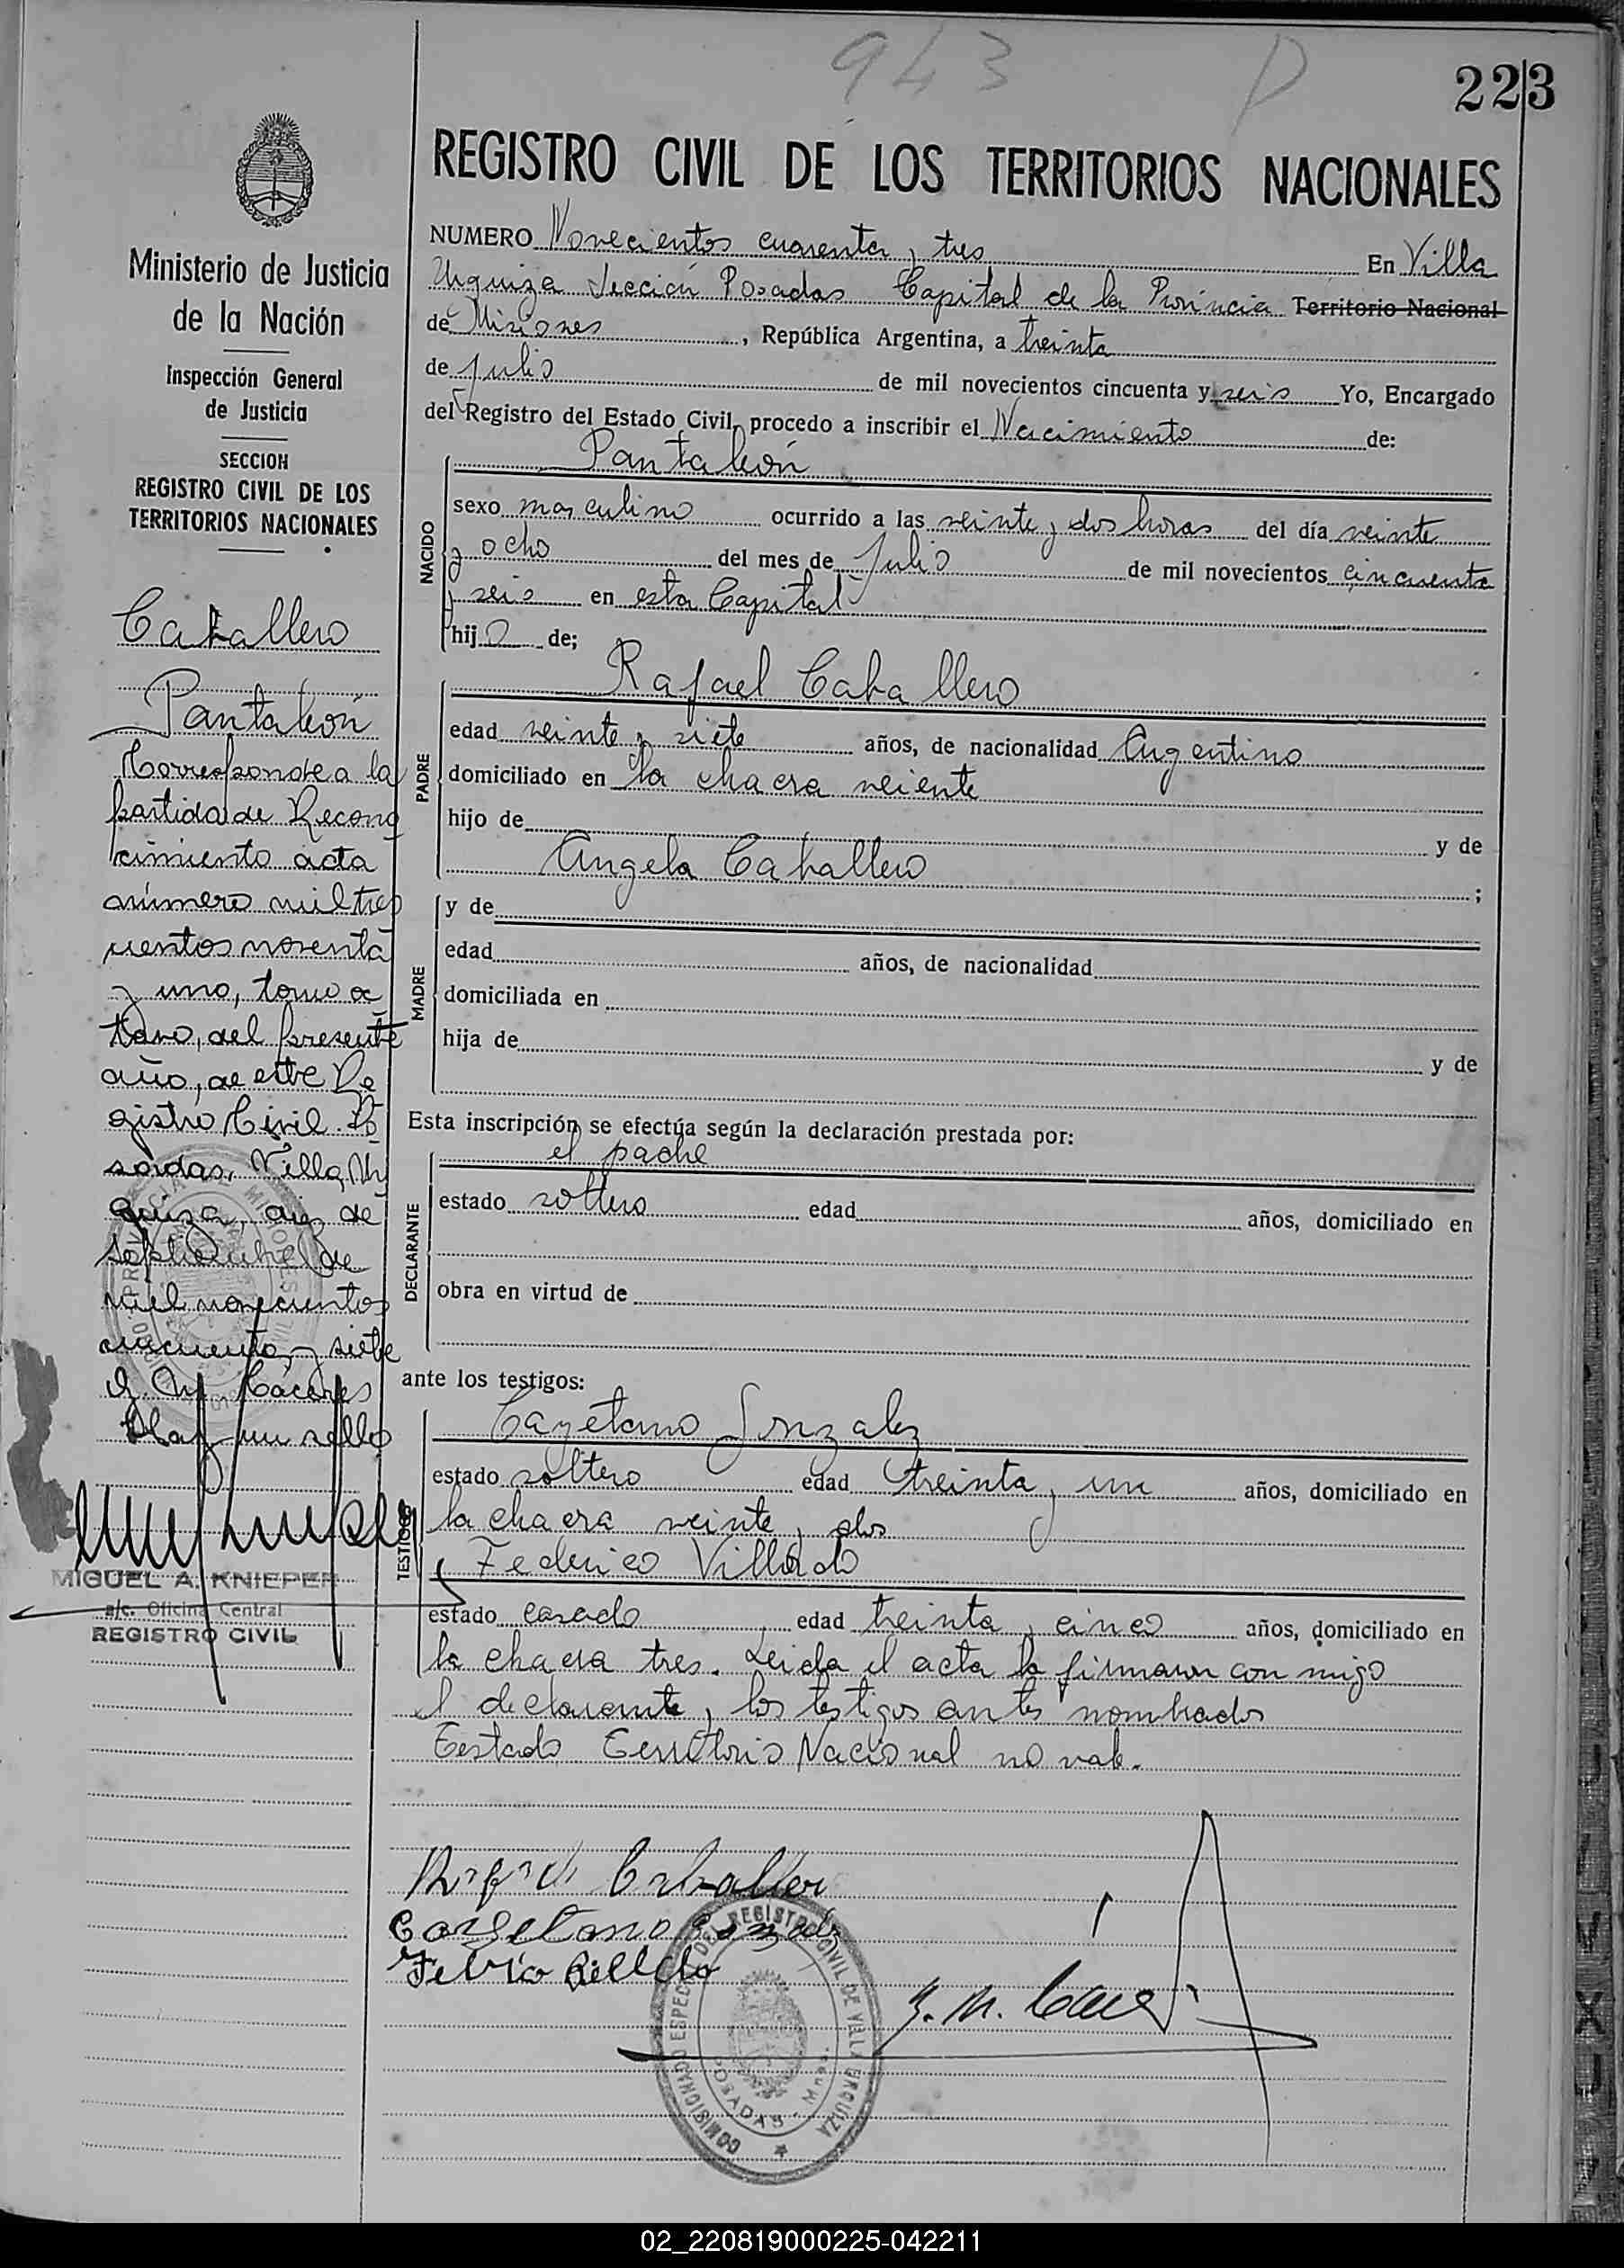 943
223
REGISTRO CIVIL DE LOS TERRITORIOS NACIONALES
Ministerio de Justicia
de la Nación
Inspección General
de Justicia
SECCION
REGISTRO CIVIL DE LOS
TERRITORIOS NACIONALES
NUMERO Novecientos cuarenta y tres En Villa
Urquiza Sección Posadas Capital de la Provincia Territorio Nacional
de Misiones, República Argentina, a treinta
de julio de mil novecientos cincuenta y seis Yo, Encargado
del Registro del Estado Civil, procedo a inscribir el Nacimiento de:
Pantaleón
NACIDO
sexo masculino ocurrido a las veinte y dos horas del día veinte
y ocho del mes de Julio de mil novecientos cincuenta
y seis en esta Capital
hijo de;
Rafael Caballero
PADRE
edad veinte y siete años, de nacionalidad Argentino
domiciliado en la chacra veiente
hijo de y de
Angela Caballero ;
MADRE
y de
edad años, de nacionalidad
domiciliada en
hija de y de
Esta inscripción se efectúa según la declaración prestada por:
el padre
DECLARANTE
estado soltero edad años, domiciliado en
obra en virtud de
ante los testigos:
Cayetano Gonzalez
TESTIGOS
estado soltero edad treinta y un años, domiciliado en
la chacra veinte y dos
y Federico Villardo
estado casado edad treinta y cinco años, domiciliado en
la chacra tres. Leida el acta la firmaron con migo
el declarante y los testigos antes nombrados
Testado Territorio Nacional no vale.
Caballero
Pantaleón
Corresponde a la
partida de Recono
cimiento acta
número mil tres
cientos noventa
y uno, tomo oc
tavo, del presente
año, de este Re
gistro Civil. Po
sadas, Villa Ur
quiza, diez de
septiembre de
mil novecientos
cincuenta y siete
Cáceres
Hay un sello
MIGUEL A. KNIEPER
a/c. Oficina Central
REGISTRO CIVIL
Caballero
Cayetano Gonzalez
COMISIONADO ESPECIAL DEL REGISTRO CIVIL DE VILLA URQUIZA
POSADAS - Mnes.
02_220819000225-042211